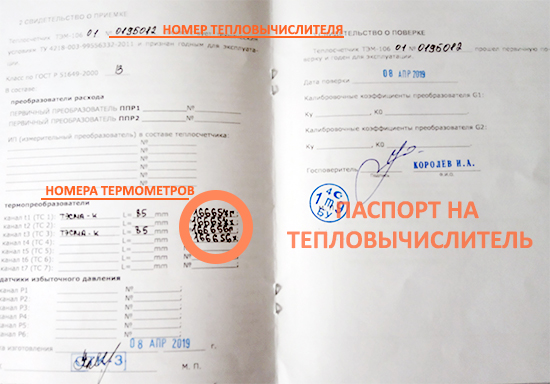 2 СВИДЕТЕЛЬСТВО О ПРИЕМКЕ
НОМЕР ТЕПЛОВЫЧИСЛИТЕЛЯ
Теплосчетчик ТЭМ-106 01 № 0196012
условиям ТУ 4218-003-99556332-2011 и признан годным для эксплуата-
ции.
Класс по ГОСТ Р 51649-2000 В
В составе:
преобразователи расхода
ПЕРВИЧНЫЙ ПРЕОБРАЗОВАТЕЛЬ ППР1 №
ПЕРВИЧНЫЙ ПРЕОБРАЗОВАТЕЛЬ ППР2 №
ИП (измерительный преобразователь) в составе теплосчетчика:
№ №
№ №
№ №
НОМЕРА ТЕРМОМЕТРОВ
термопреобразователи
канал t1 (ТС 1): L= 85 mm №
канал t2 (ТС 2): L= mm №
канал t3 (ТС 3): L= 85 mm №
канал t4 (ТС 4): L= mm №
канал t5 (ТС 5): L= mm №
канал t6 (ТС 6): L= mm №
канал t7 (ТС 7): L= mm №
датчики избыточного давления
канал P1 №
канал P2: №
канал P3: №
канал P4: №
канал P5: №
канал P6: №
изготовления 08 АПР 2019
М. П.
СВИДЕТЕЛЬСТВО О ПОВЕРКЕ
Теплосчетчик ТЭМ-106 01 № 0196012 прошел первичную по-
верку и годен для эксплуатации.
Дата поверки 08 АПР 2019
Калибровочные коэффициенты преобразователя G1:
Ку , К0
Калибровочные коэффициенты преобразователя G2:
Ку , К0
Госповеритель КОРОЛЕВ И.А.
Подпись Ф.И.О.
ПАСПОРТ НА
ТЕПЛОВЫЧИСЛИТЕЛЬ